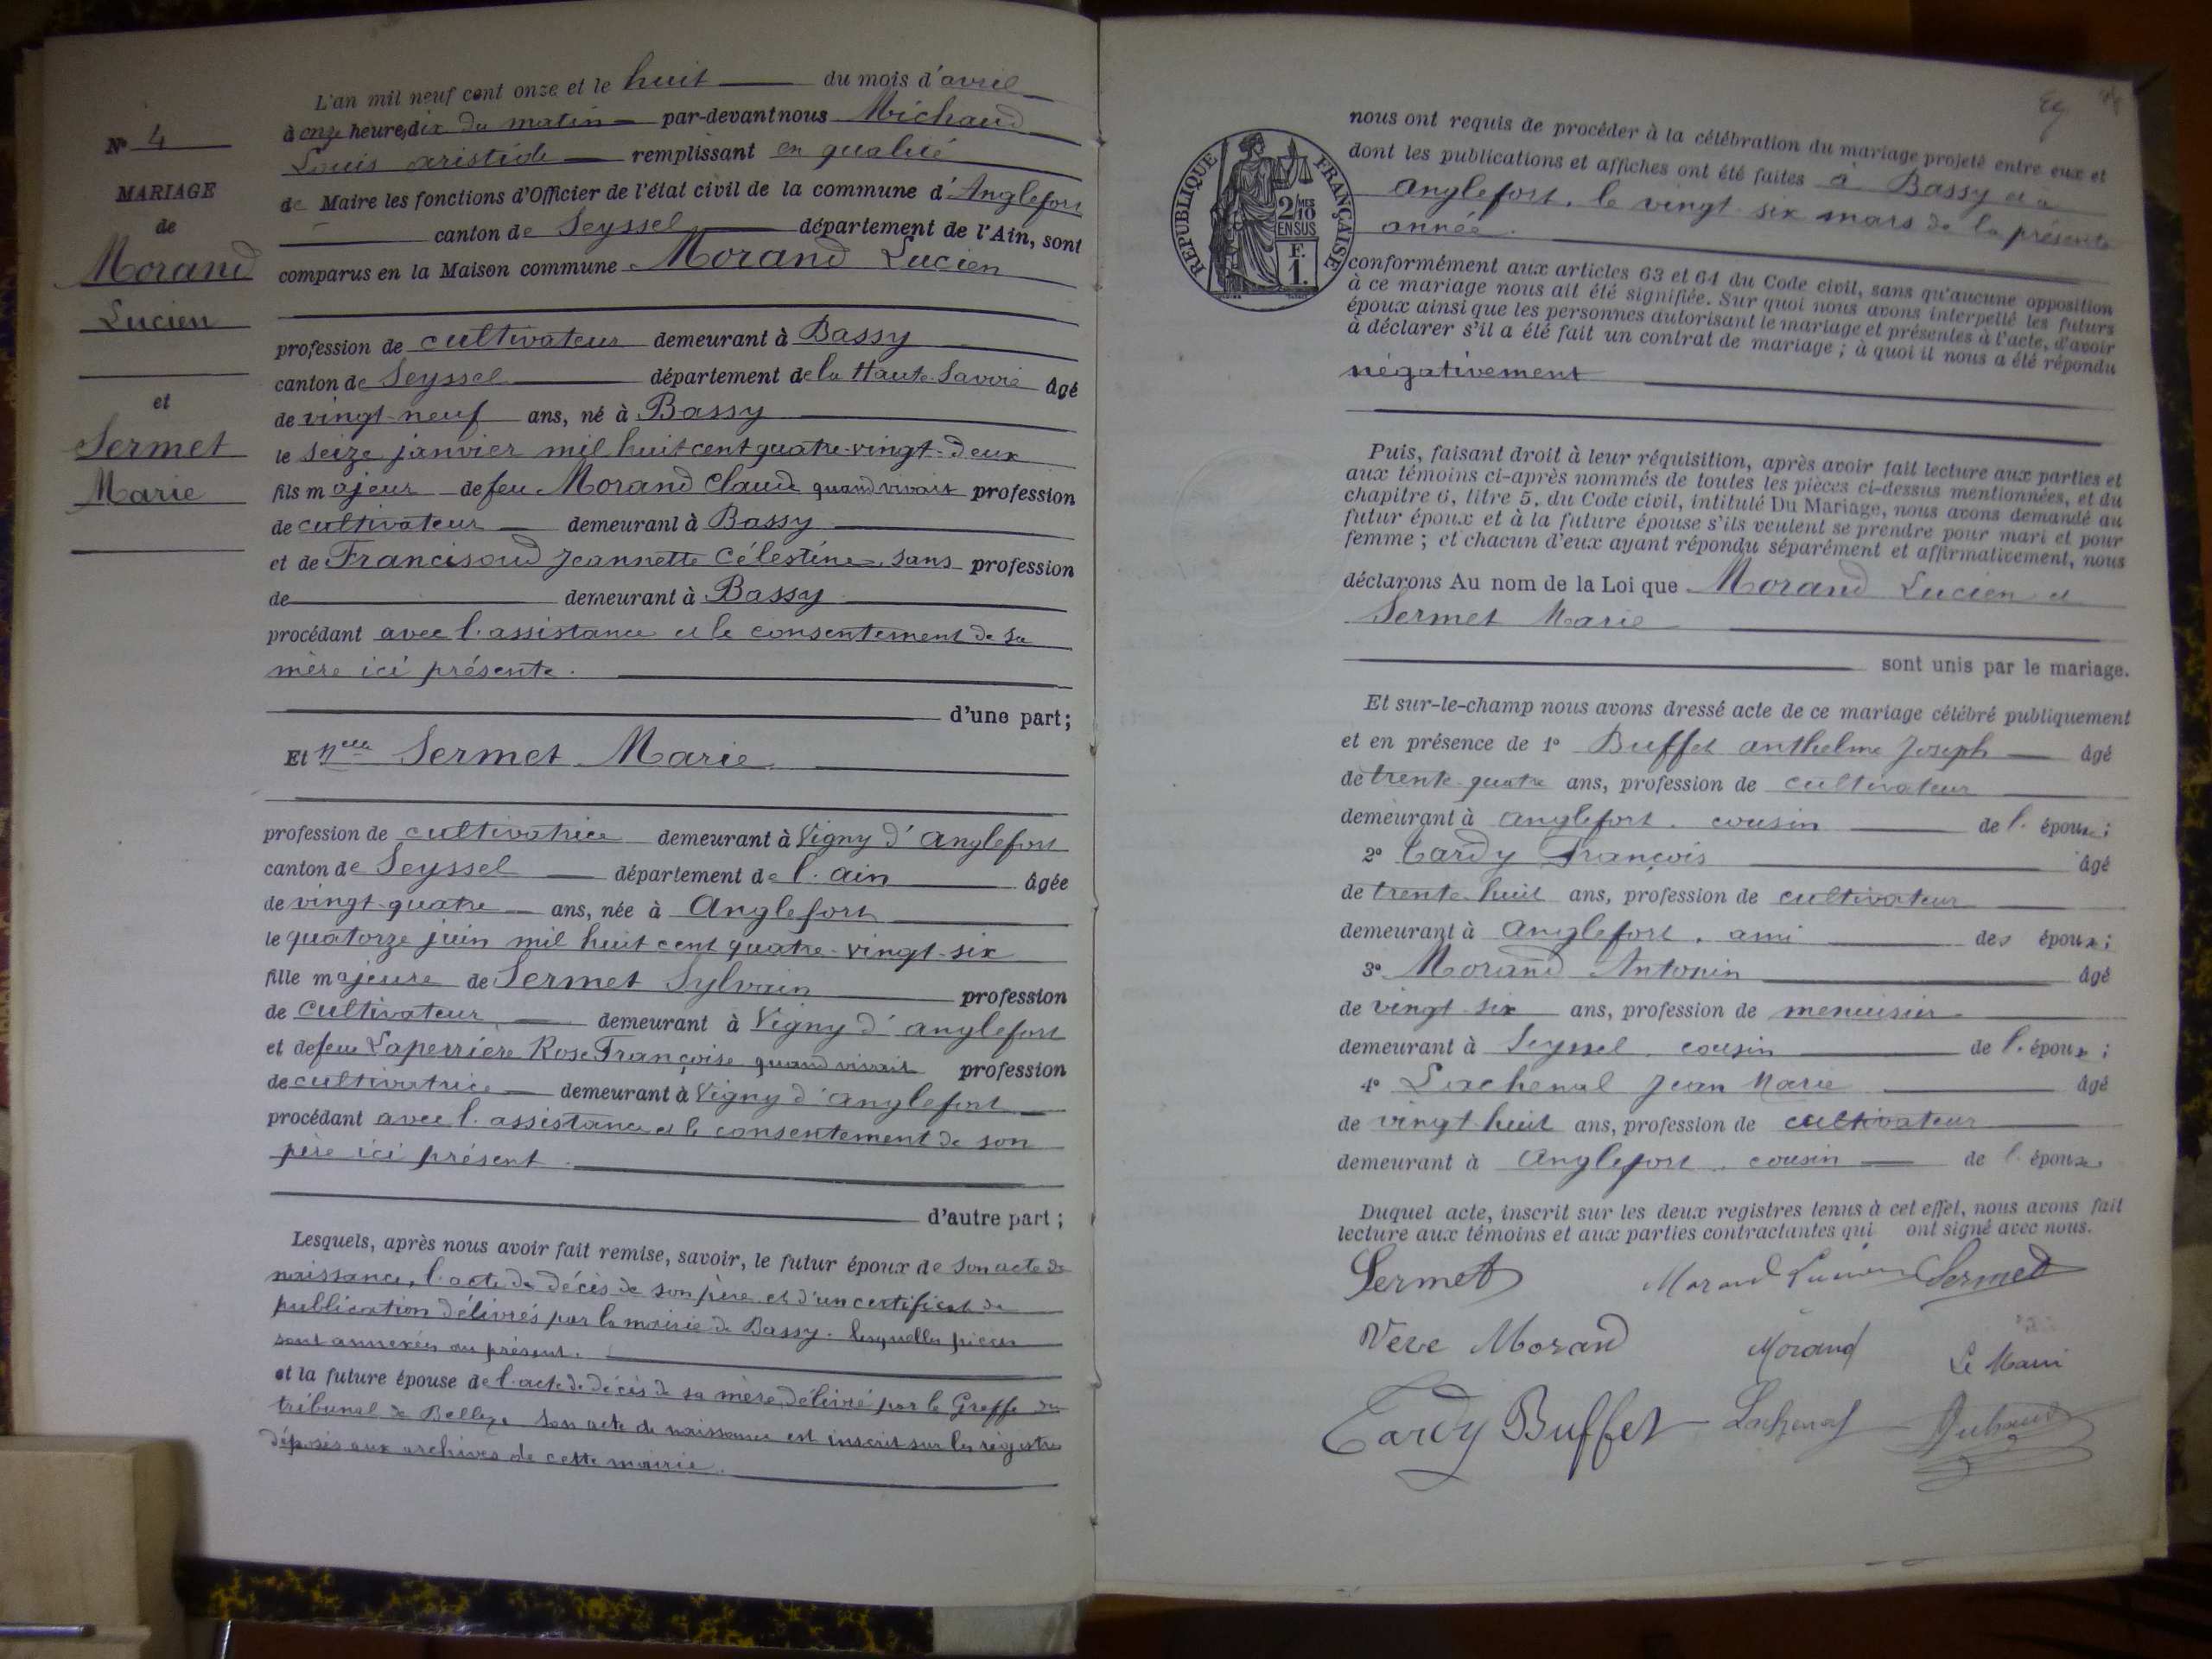 L'an mil neuf cent onze et le huit du mois d'avril
à onze heures dix du matin par-devant nous Michaud
Louis aristide remplissant en qualité
de Maire les fonctions d'Officier de l'état civil de la commune d'Anglefort
canton de Seyssel département de l'Ain, sont
comparus en la Maison commune Morand Lucien
profession de cultivateur demeurant à Bassy
canton de Seyssel département de la Haute Savoie âgé
de vingt-neuf ans, né à Bassy
le seize janvier mil huit cent quatre-vingt-deux
fils majeur de feu Morand Claude quand vivait profession
de cultivateur demeurant à Bassy
et de Francisoud Jeannette Célestine, sans profession
de demeurant à Bassy
procédant avec l'assistance et le consentement de sa
mère ici présente.
d'une part;
Et Melle Sermet Marie
profession de cultivatrice demeurant à Vigny d'Anglefort
canton de Seyssel département de l'ain âgée
de vingt-quatre ans, née à Anglefort
le quatorze juin mil huit cent quatre-vingt-six
fille majeure de Sermet Sylvain profession
de cultivateur demeurant à Vigny d'anglefort
et de feue Laperrière Rose Françoise quand vivait profession
de cultivatrice demeurant à Vigny d'anglefort
procédant avec l'assistance et le consentement de son
père ici présent.
d'autre part;
Lesquels, après nous avoir fait remise, savoir, le futur époux de son acte de
naissance, l'acte de décès de son père et d'un certificat de
publication délivrés par la mairie de Bassy. lesquelles pièces
sont annexées au présent.
et la future épouse de l'acte de décès de sa mère, délivré par le Greffe du
tribunal de Belley. Son acte de naissance est inscrit sur les régistres
déposés aux archives de cette mairie.
N° 4
MARIAGE
de
Morand
Lucien
et
Sermet
Marie
RÉPUBLIQUE FRANÇAISE
2/10MES
EN SUS
F.
1.
nous ont requis de procéder à la célébration du mariage projeté entre eux et
dont les publications et affiches ont été faites à Bassy et à
Anglefort, le vingt-six mars de la présente
année.
conformément aux articles 63 et 64 du Code civil, sans qu'aucune opposition
à ce mariage nous ait été signifiée. Sur quoi nous avons interpellé les futurs
époux ainsi que les personnes autorisant le mariage et présentes à l'acte, d'avoir
à déclarer s'il a été fait un contrat de mariage; à quoi il nous a été répondu
négativement
Puis, faisant droit à leur réquisition, après avoir fait lecture aux parties et
aux témoins ci-après nommés de toutes les pièces ci-dessus mentionnées, et du
chapitre 6, titre 5, du Code civil, intitulé Du Mariage, nous avons demandé au
futur époux et à la future épouse s'ils veulent se prendre pour mari et pour
femme; et chacun d'eux ayant répondu séparément et affirmativement, nous
déclarons Au nom de la Loi que Morand Lucien et
Sermet Marie
sont unis par le mariage.
Et sur-le-champ nous avons dressé acte de ce mariage célébré publiquement
et en présence de 1° Buffet anthelme Joseph âgé
de trente-quatre ans, profession de cultivateur
demeurant à anglefort. cousin de l'épouse;
2° Tardy François âgé
de trente-huit ans, profession de cultivateur
demeurant à Anglefort, ami des époux;
3° Morand Antonin âgé
de vingt-six ans, profession de menuisier
demeurant à Seyssel. cousin de l'époux;
4° Lachenal Jean Marie âgé
de vingt-huit ans, profession de cultivateur
demeurant à Anglefort. cousin de l'épouse.
Duquel acte, inscrit sur les deux registres tenus à cet effet, nous avons fait
lecture aux témoins et aux parties contractantes qui ont signé avec nous.
Sermet Morand Lucien Sermet
Veve Morand Morand Le Maire
Tardy Buffet Lachenal